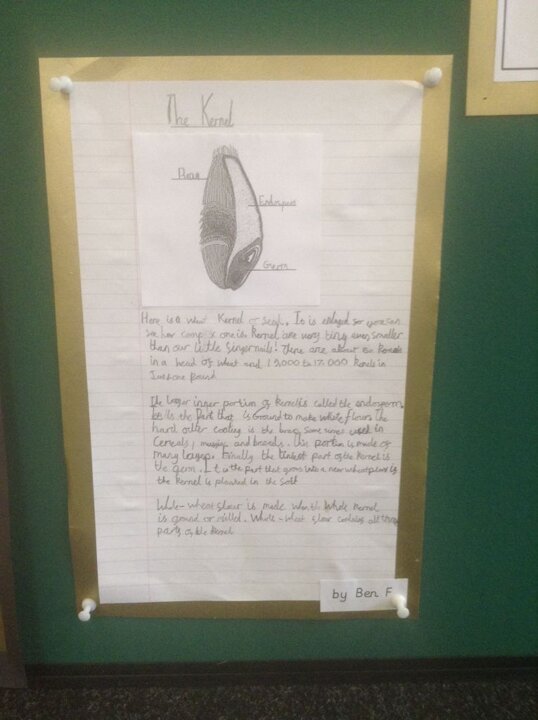 The Kernel
Endosperm
Germ
Here is a wheat Kernel or seed. It is enlarged so you can
see how complex one is. Kernel are very tiny even smaller
than our little fingernails! There are about 50 Kernels
in a head of wheat and 15,000 to 17,000 Kernels in
Just one Pound
The larger inner portion of Kernel is called the endosperm.
It is the Part that is Ground to make white flour. The
hard outer coating is the bran Some times used in
Cereals, and breads. this portion is made of
many layers. Finally the tiniest part of the Kernel is
the germ. It is the part that grows into a new wheat plant is
the Kernel is planted in the Soil
Whole-wheat flour is made when the Whole Kernel
is ground or milled. Whole-wheat flour contains all three
parts of the Kernel
by Ben F